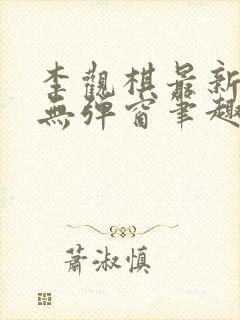 李觀棋最新
無彈窗筆趣
蕭淑慎